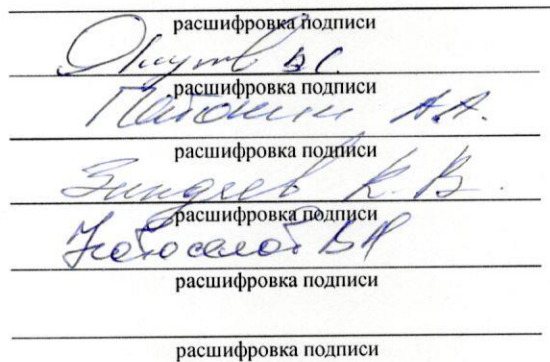 расшифровка подписи
В.С.
расшифровка подписи
А.А.
расшифровка подписи
К. В.
расшифровка подписи
Новоселов В А
расшифровка подписи
расшифровка подписи